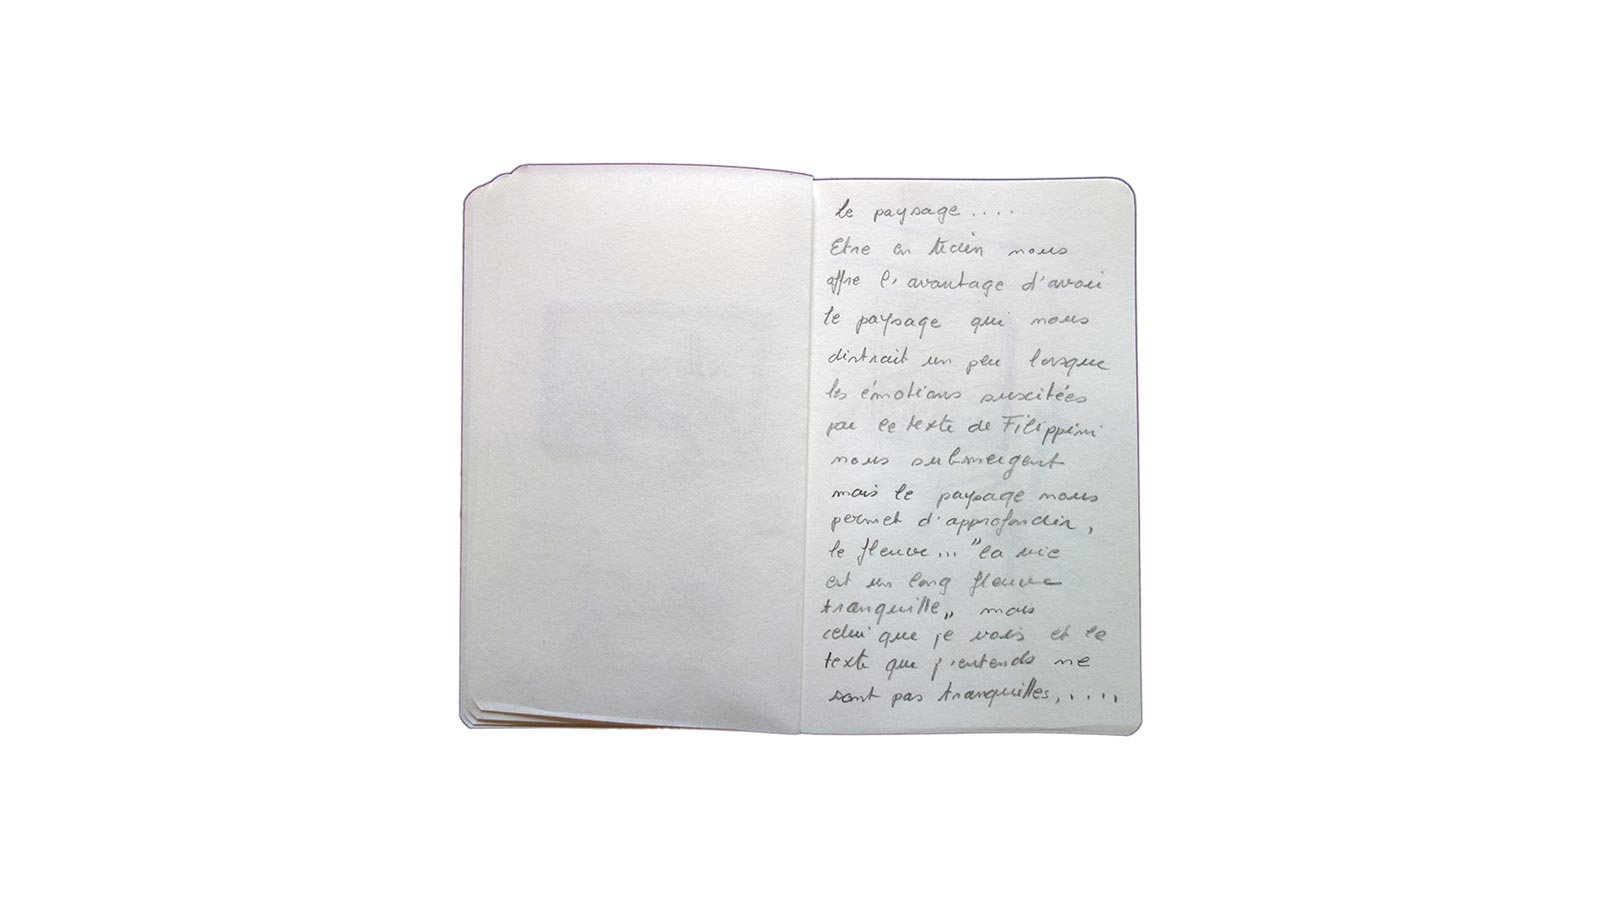 le paysage....
Etre en Técin nous
offre l'avantage d'avoir
le paysage qui nous
distrait un peu lorsque
les émotions suscitées
par le texte de Filippini
nous submergent
mais le paysage nous
permet d'approfondir,
le fleuve... "la vie
est un long fleuve
tranquille„ mais
celui que je vois et le
texte que j'entends ne
sont pas tranquilles,....